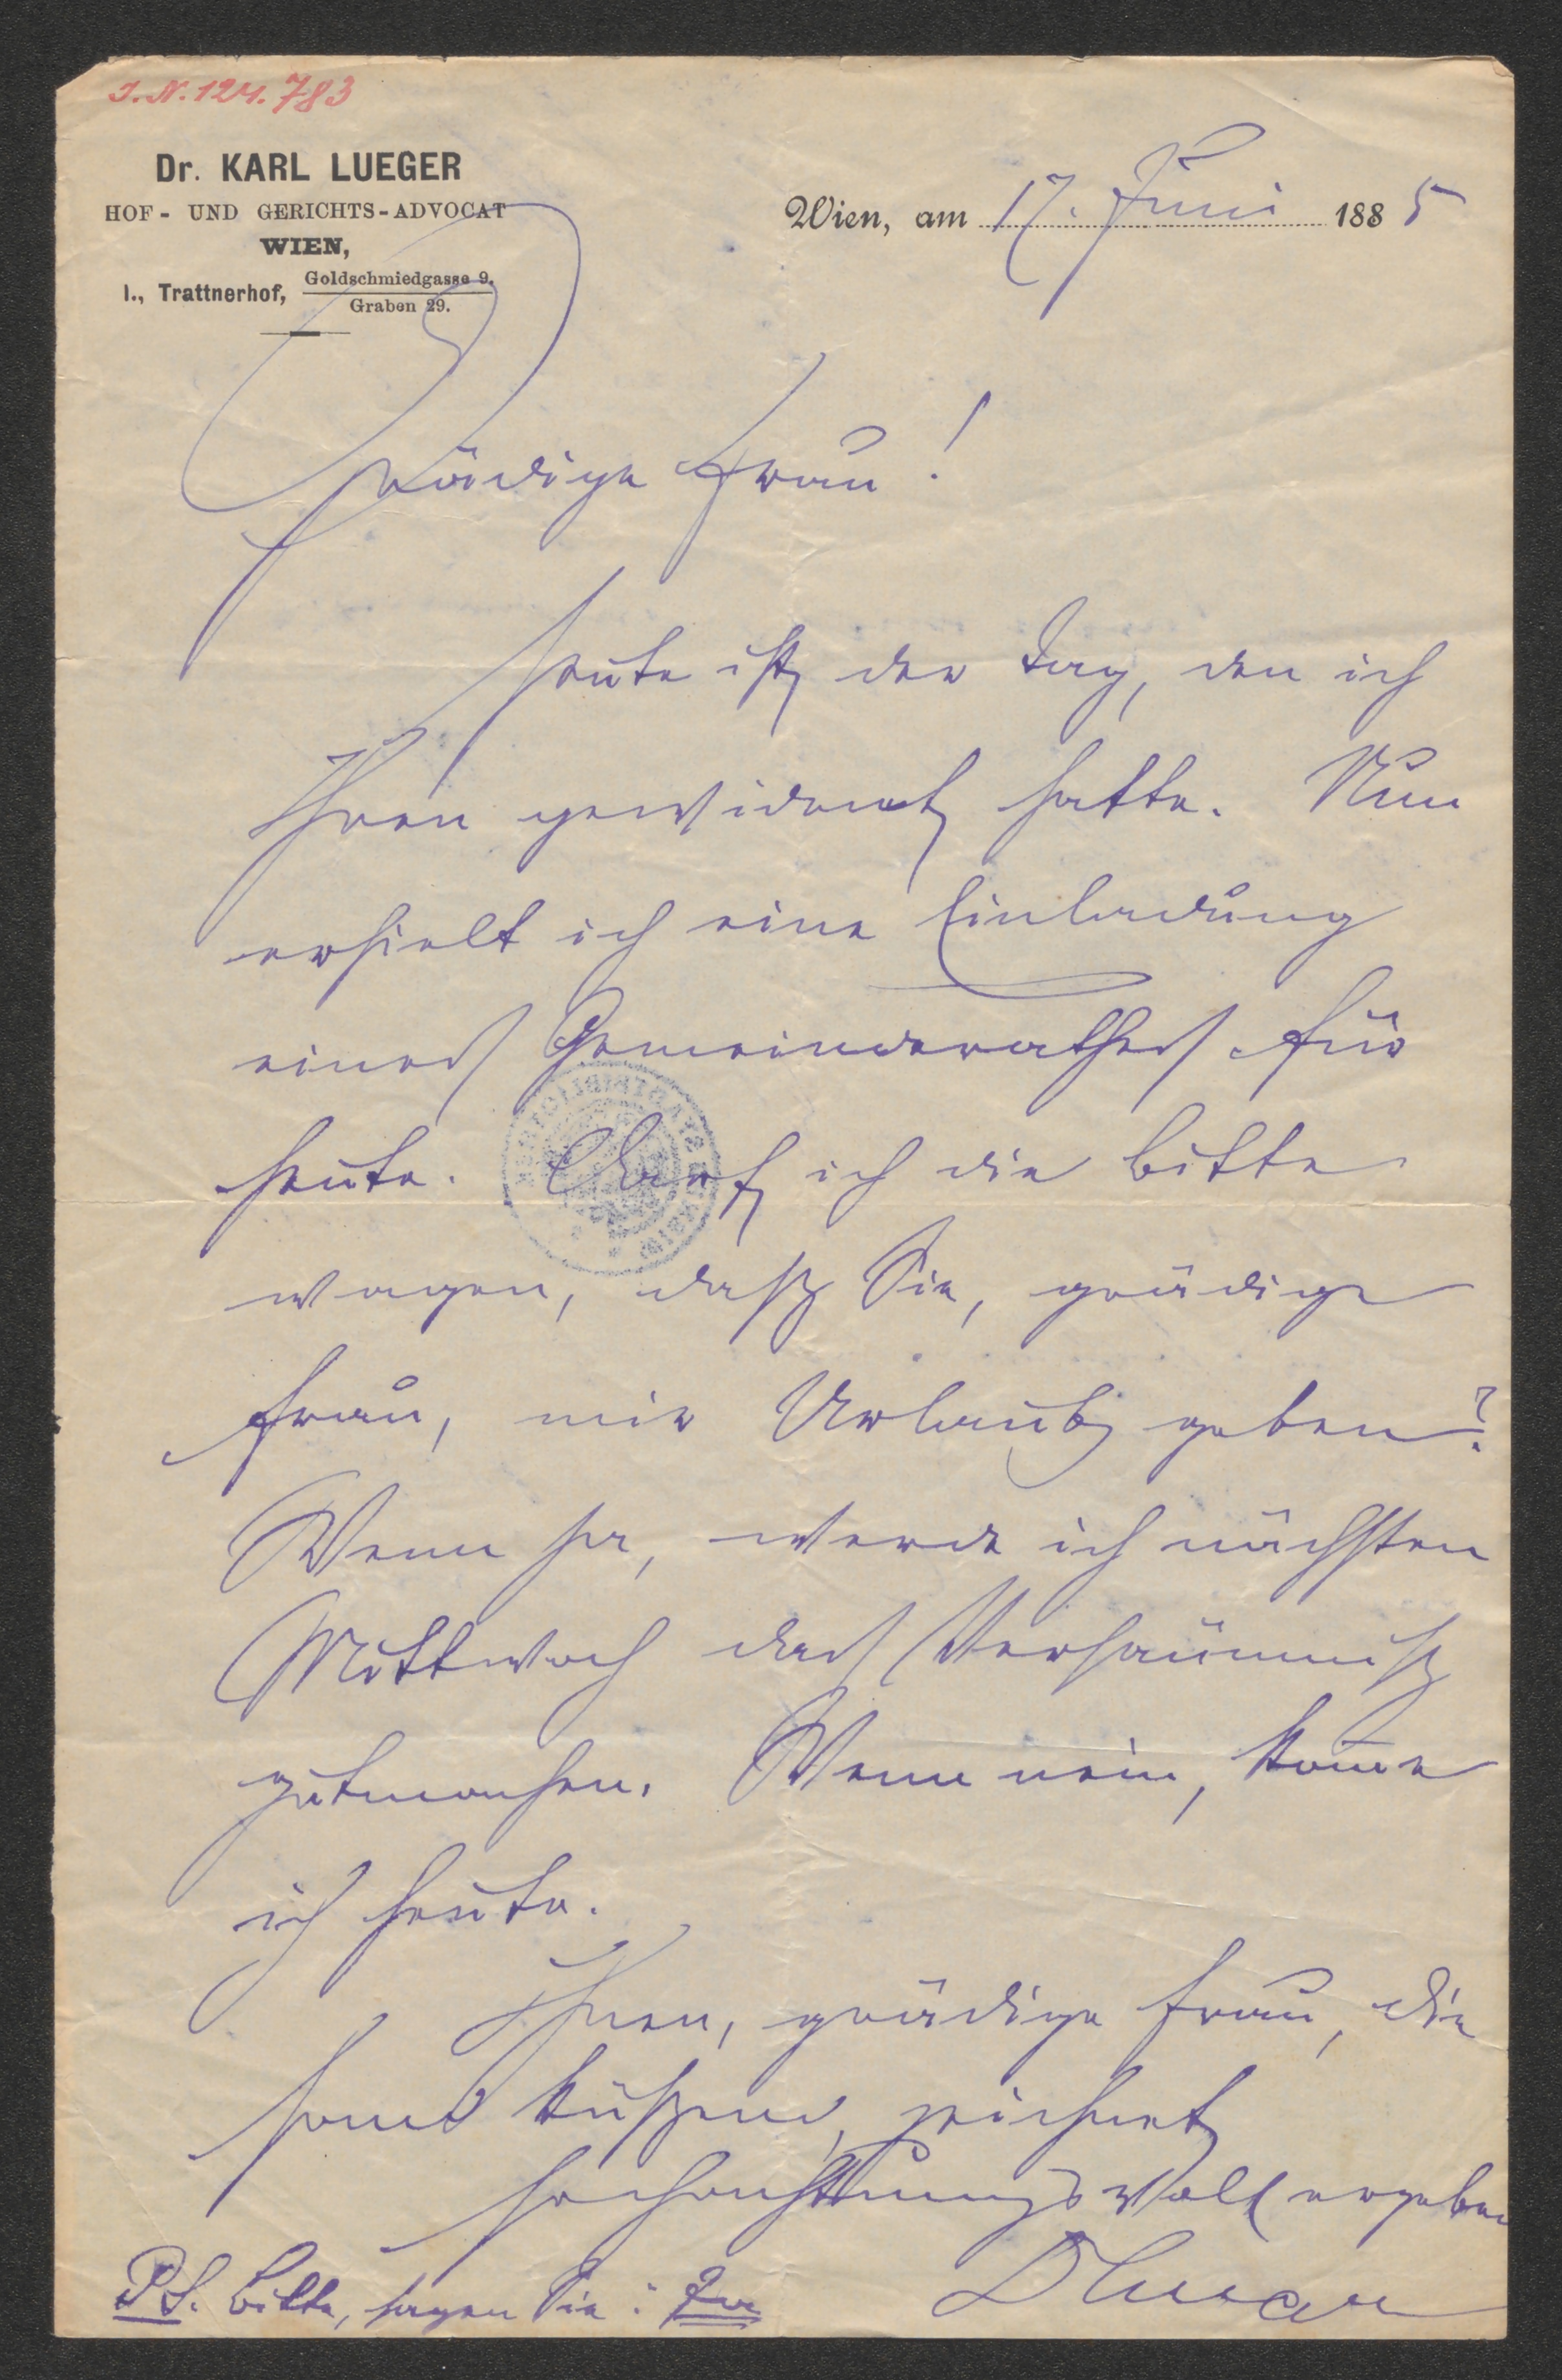 J.N. 124.783
Dr. KARL LUEGER
HOF- UND GERICHTS-ADVOCAT
WIEN,
I., Trattnerhof, Goldschmiedgasse 9.
Graben 29.
Wien, am 17. Juni 1885
Gnädige Frau!
Heute ist der Tag, den ich
Ihnen gewidmet hatte. Nun
erhielt ich eine Einladung
eines Gemeinderathes für
heute. Darf ich die Bitte
wagen, daß Sie, gnädige
Frau, mir Urlaub geben?
Wenn ja, werde ich nächsten
Mittwoch das Versäumniß
gutmachen. Wenn nein, kom̅e
ich heute.
Ihnen, gnädige Frau, die
Hand küßend, zeichnet
hochachtungsvoll ergeben
DrLueger
PS. Bitte, sagen Sie: Ja